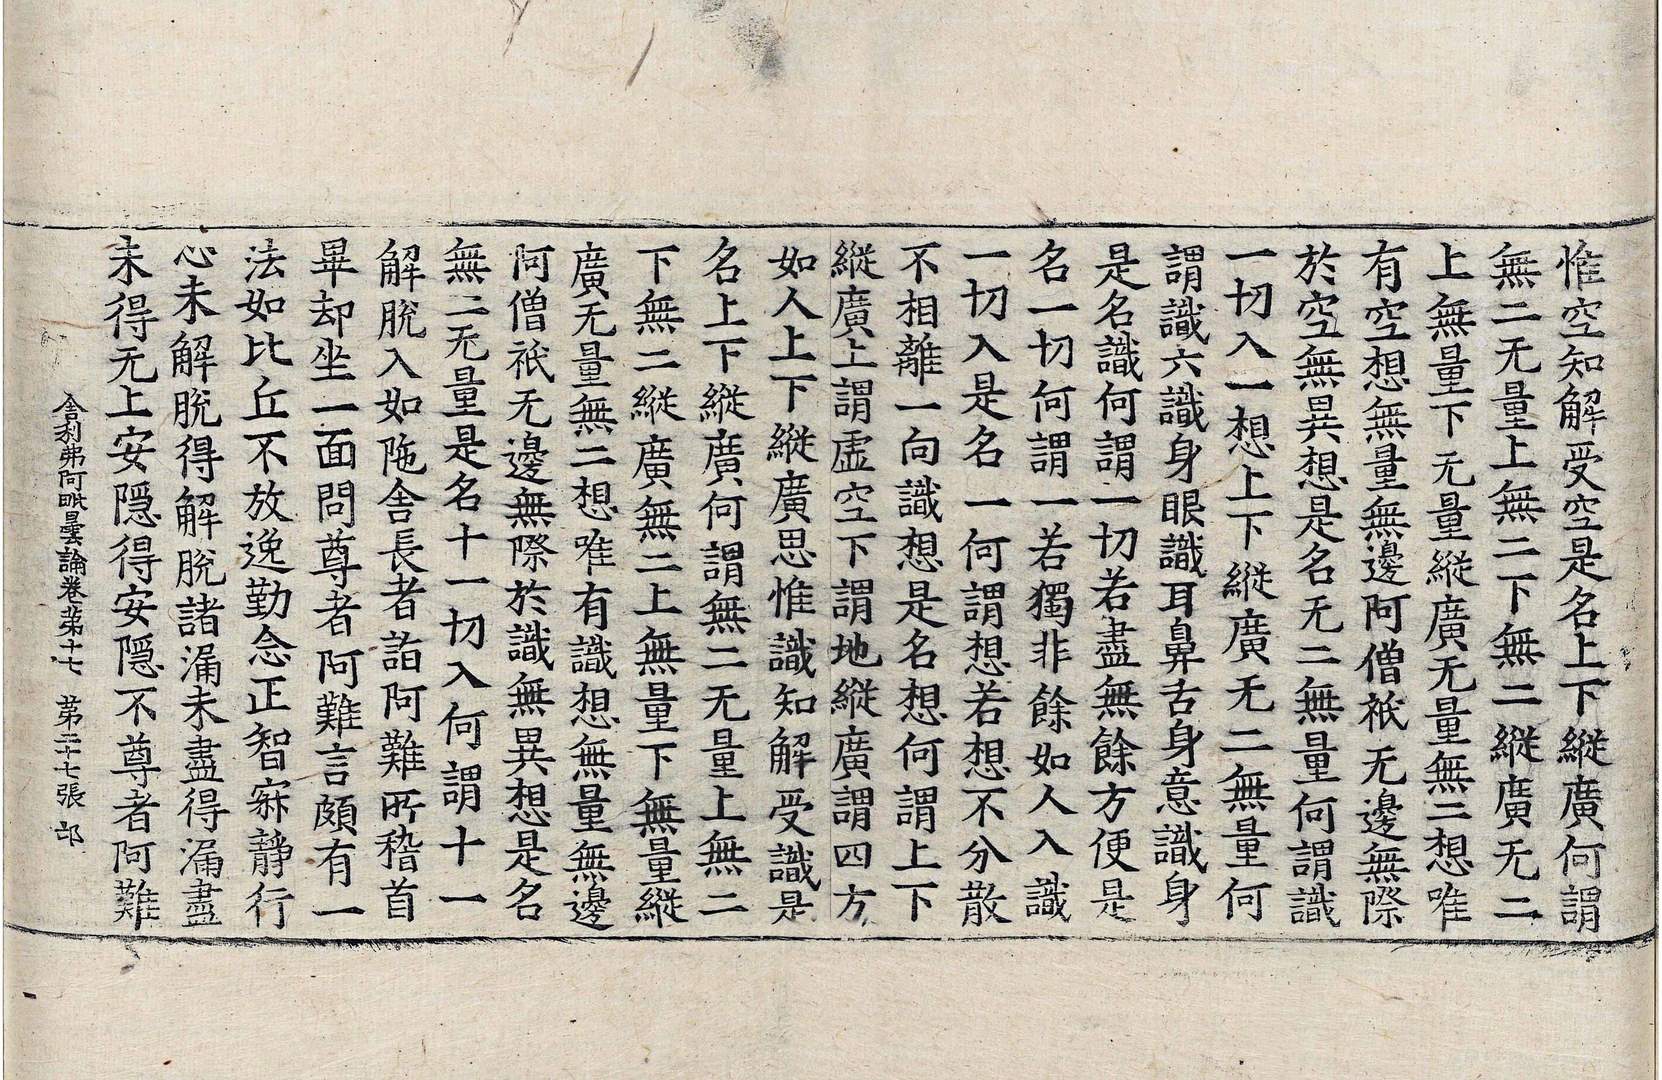 惟空知解受空是名上下縱廣何謂
無二无量上無二下無二縱廣无二
上無量下无量縱廣无量無二想唯
有空想無量無邊阿僧祇无邊無際
於空無異想是名无二無量何謂識
一切入一想上下縱廣无二無量何
謂識六識身眼識耳鼻舌身意識身
是名識何謂一切若盡無餘方便是
名一切何謂一若獨非餘如人入識
一切入是名一何謂想若想不分散
不相離一向識想是名想何謂上下
縱廣上謂虛空下謂地縱廣謂四方
如人上下縱廣思惟識知解受識是
名上下縱廣何謂無二无量上無二
下無二縱廣無二上無量下無量縱
廣无量無二想唯有識想無量無邊
阿僧祇无邊無際於識無異想是名
無二无量是名十一切入何謂十一
解脫入如陁舍長者詣阿難所稽首
畢却坐一面問尊者阿難言頗有一
法如比丘不放逸勤念正智寂靜行
心未解脫得解脫諸漏未盡得漏盡
未得无上安隱得安隱不尊者阿難
舍利弗阿毗曇論卷苐十七 第二十七張 邙